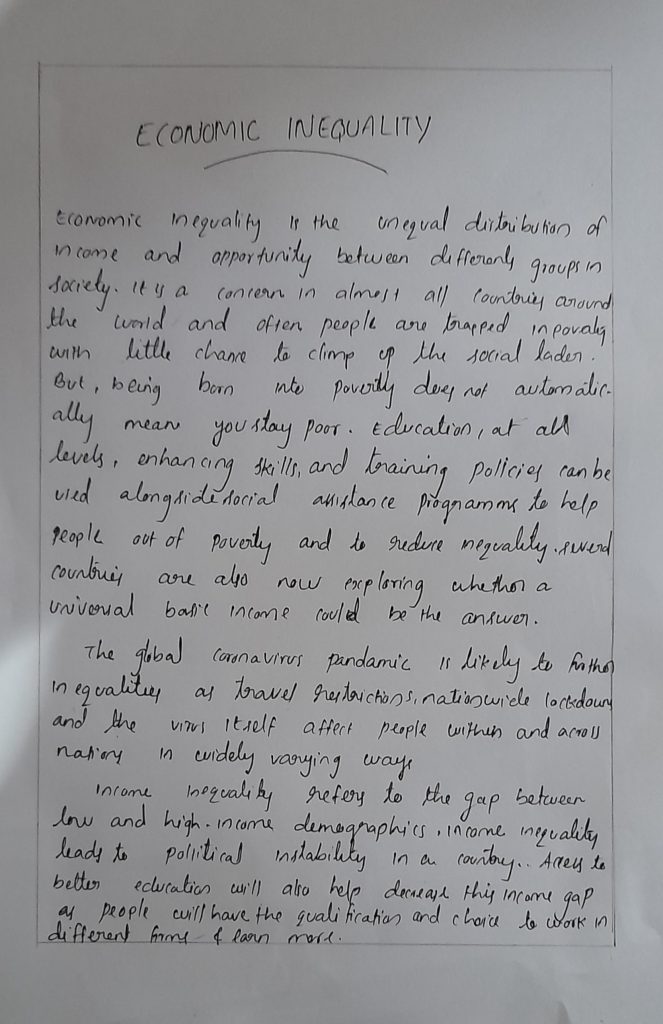 ECONOMIC INEQUALITY
Economic inequality is the unequal distribution of
income and opportunity between differents groups in
society. It is a concern in almost all countries around
the world and often people are trapped in povaty
with little chane to climp up the social lader.
But, being born into poverty does not automatic-
ally mean you stay poor. Education, at all
levels, enhancing skills, and training policies can be
used alongside social assistance programms to help
people out of poverty and to reduce inequality. several
countries are also now exploring whether a
universal basic income could be the answer.
The global coronavirus pandamic is likely to further
inequalities as travel restrictions, nationwide lockdown
and the virus itself affect people within and across
nations in widely varying ways
Income Inequality refers to the gap between
low and high-income demographics, income inequality
leads to political instability in a country.. Access to
better education will also help decrease this income gap
as people will have the qualification and choice to work in
different firms & earn more.